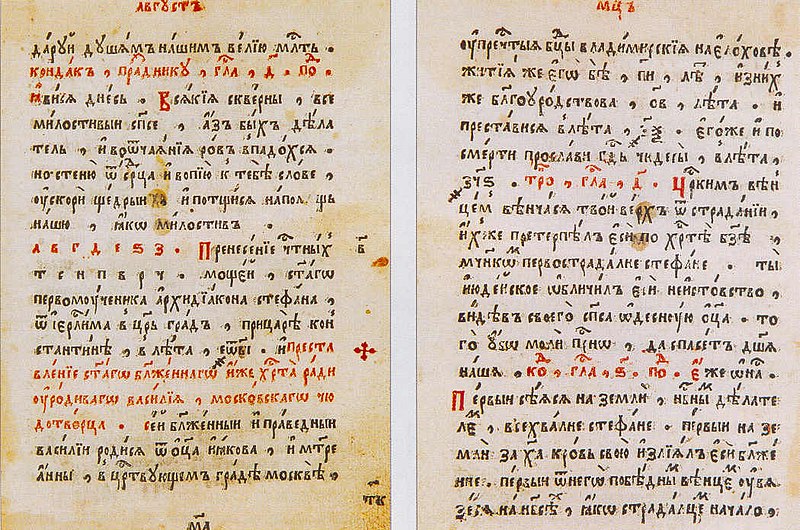 АВГУСТЪ
даруй душамъ нашимъ велїю млⷭ҇ть .
кондакъ , праⷥднику , гла , д҃ . поⷣ .
ꙗвися днесь . Всякїя скверны , все
милостивыи сп҃се , а҆зъ быхъ дѣла
тель , и҆ во ѿчаянїя ровъ впадохся .
но стеню ѿ срⷣца и҆ вопїю к тебѣ слове ,
оу҆скори щедрыи и҆ потщися на пом щь
нашю , ꙗ҆кѡ милостивъ .
а в г д е ѕ з . Пренесенїе чтⷭ҇ныхъ
т с и п в р ч . мощеи , ст҃агѡ
первомоученика а҆рхидїакона стефана ,
ѿ і҆ерⷭ҇лима в цр҃ь градъ , при царѣ кон
стантинѣ , в лѣта , . и҆ преста
вленїе ст҃агѡ бл҃женнагѡ и҆же хрⷭ҇та ради
оу҆родиваго василїя , московскаго чю
дотворца . сеи бл҃женныи и҆ праведныи
василїи родися ѿ ѻ҆ц҃а и҆ꙗкова , и҆ мт҃ре
а҆нны , в црⷭ҇твующемъ градѣ москвѣ ,
мц҃ъ
оу҆ прⷱ҇тыя бц҃ы владимирскїя на е҆лоховѣ .
житїя же е҆гѡ бѣ , пи , лѣⷮ , и҆з них
же бл҃гоуродствова , ов , лѣта . и҆
преставися в лѣта , ҂зѯ . е҆го же и҆ по
смерти прослави гдⷭ҇ь чюдесы , в лѣта ,
҂зч҃ѕ . троⷫ , гла , д҃ . Црⷭ҇кимъ вѣн
цемъ вѣнчася твои верхъ ѿ страданїи ,
и҆хже претерпѣлъ е҆си по хрⷭ҇тѣ бз҃ѣ ,
мч҃никѡмъ первострадалне стефане . ты
и҆юдейское ѡ҆бличилъ е҆си неистовство ,
видѣвъ своего сп҃са ѡ҆десную ѻ҆ц҃а . то
го оу҆бѡ моли приⷭ҇нѡ , да спасетъ дш҃а
нашя , коⷣ , гла , ѕ҃ , поⷣ . Е҆же ѡ҆ на .
Первыи сѣяся на земли , нбⷭ҇ныи дѣлате
лемъ , всехвалне стефане . первыи на зе
мли за х҃а кровь свою и҆злїялъ е҆си бл҃же
нне . первыи ѿ негѡ побѣдны вѣнцемъ оу҆вя
зеся на нб҃сѣхъ , ꙗ҆кѡ страдалцемъ начало ,